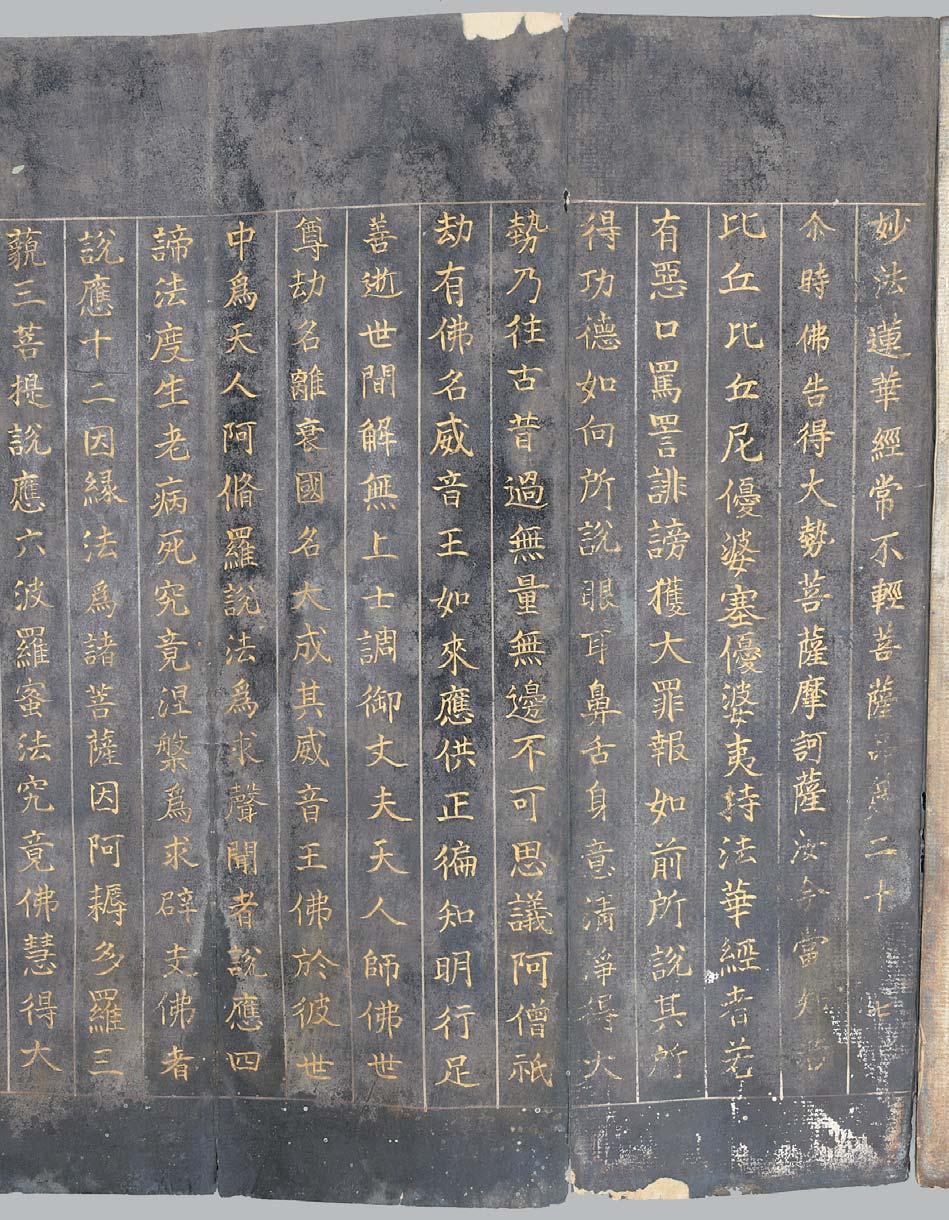 妙法蓮華經常不輕菩薩品第二十 七
尒時佛告得大勢菩薩摩訶薩汝今當知若
比丘比丘尼優婆塞優婆夷持法華經者若
有惡口罵詈誹謗獲大罪報如前所說其所
得功德如向所說眼耳鼻舌身意清淨得大
勢乃往古昔過無量無邊不可思議阿僧祇
劫有佛名威音王如來應供正徧知明行足
善逝世間解無上士調御丈夫天人師佛世
尊劫名離衰國名大成其威音王佛於彼世
中爲天人阿脩羅說法爲求聲聞者說應四
諦法度生老病死究竟涅槃爲求辟支佛者
說應十二因縁法爲諸菩薩因阿耨多羅三
藐三菩提說應六波羅蜜法究竟佛慧得大